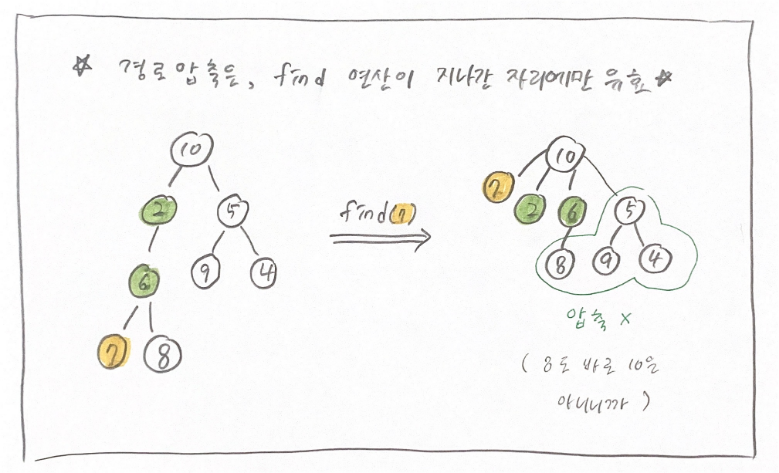 ☆ 경로 압축은, find 연산이 지나간 자리에만 유효 ☆
10
2
5
6
9
4
7
8
find(7)
10
7
2
6
5
8
9
4
압축 X
( 8도 바로 10은
아니니까 )